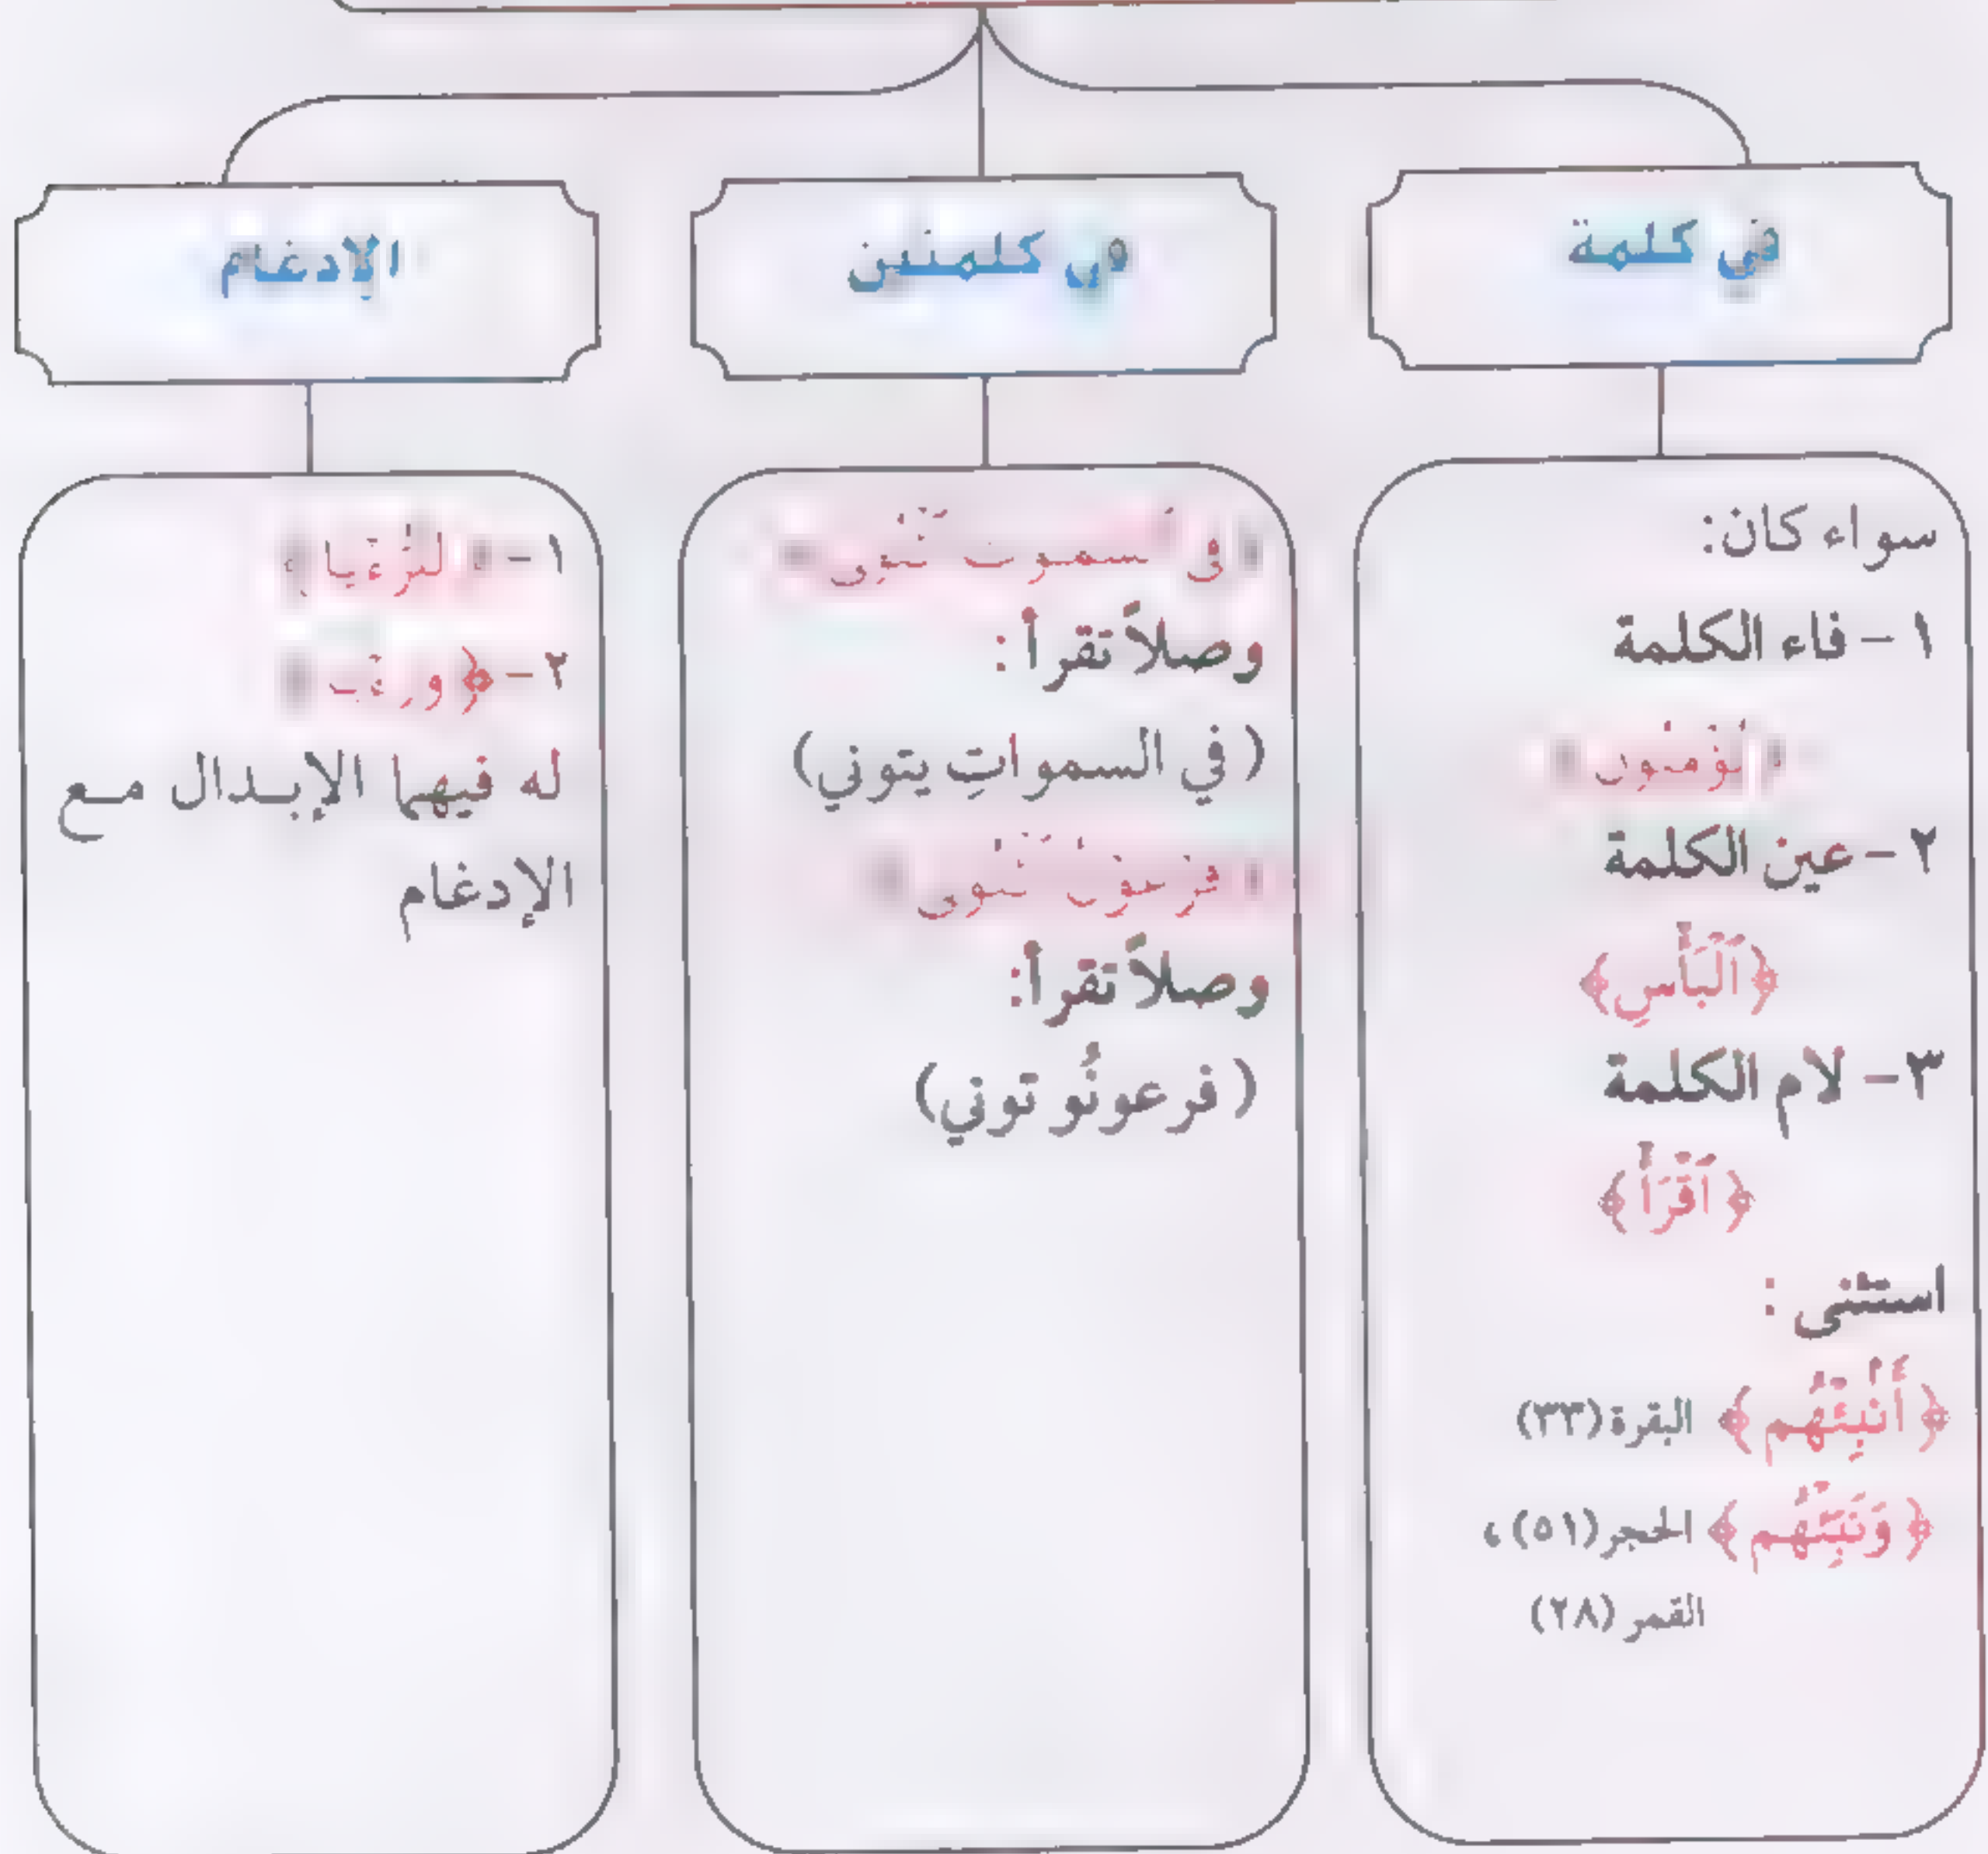 في كلمة
سواء كان:
١ - فاء الكلمة
٢ - عين الكلمة
﴿ٱلْبَأْسِ﴾
٣ - لام الكلمة
﴿ٱقْرَأْ﴾
استثنى :
﴿أَنْبِئْهُم﴾ البقرة (٣٣)
﴿وَنَبِّئْهُم﴾ الحجر (٥١) ،
القمر (٢٨)
في كلمتين
وصلاً تقرأ :
( في السمواتِ يتوني)
وصلاً تقرأ:
( فرعونُو توني)
الإدغام
١ -
٢ -
له فيهما الإبدال مع
الإدغام